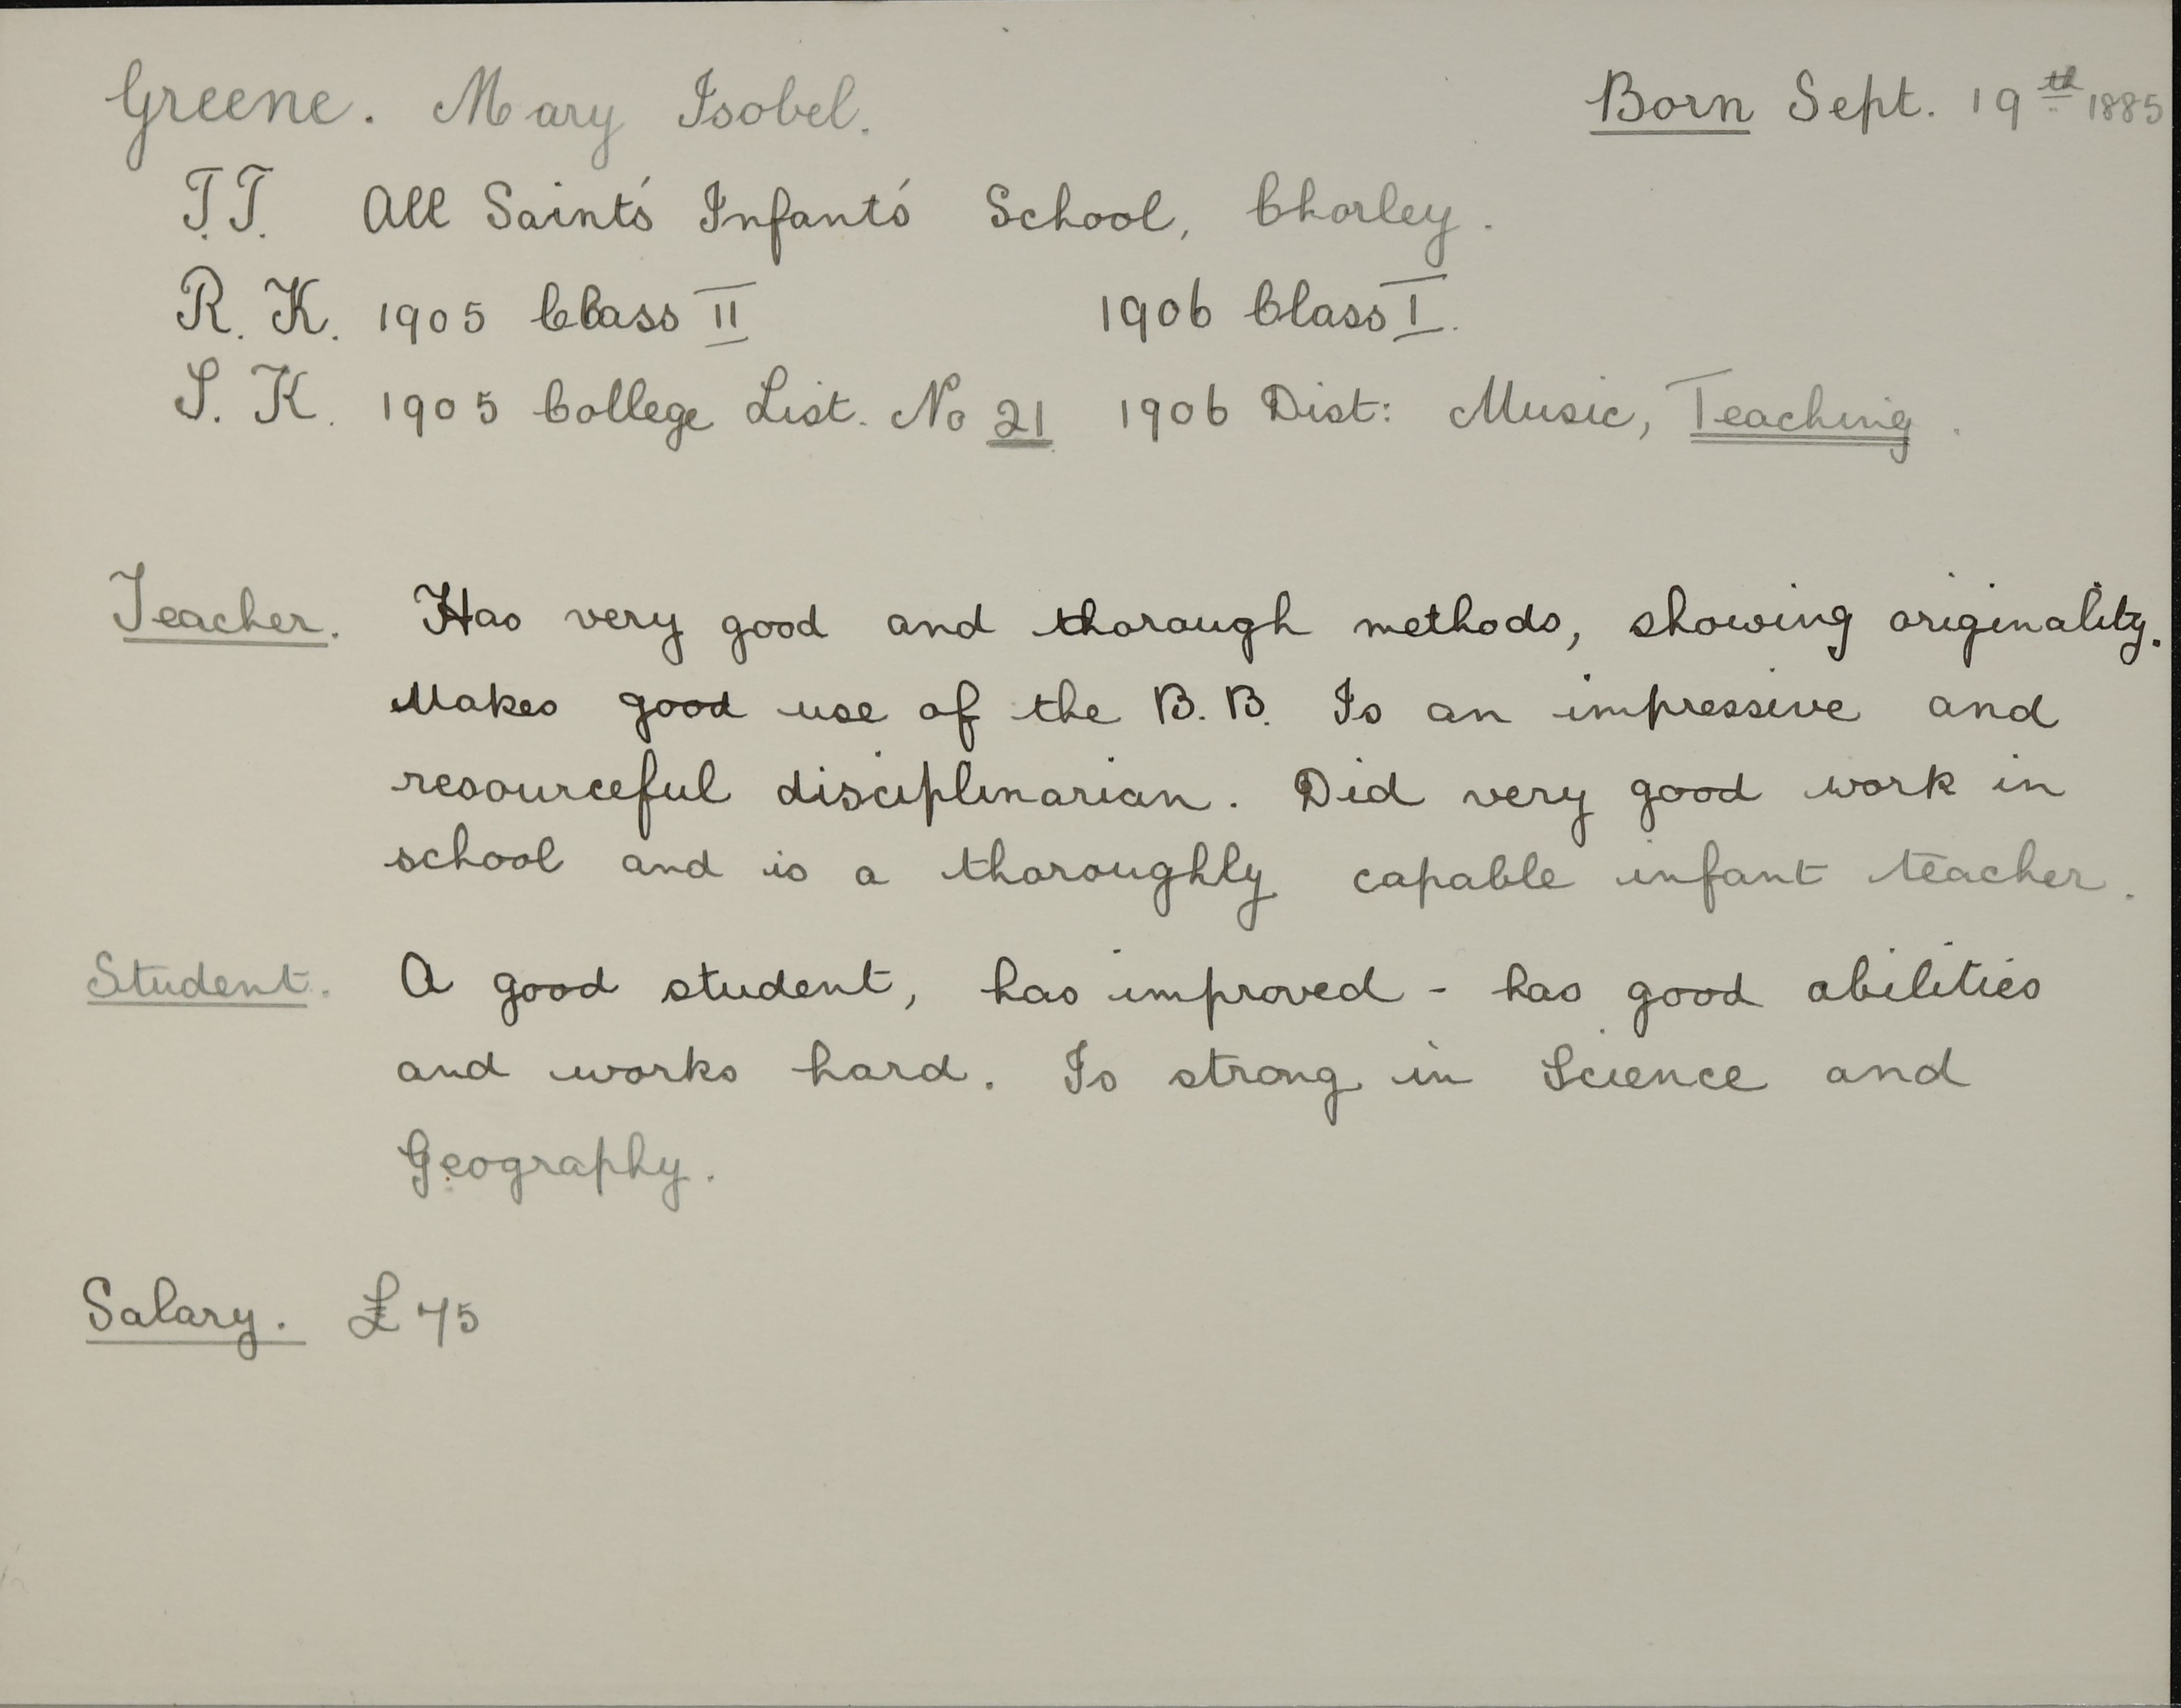 Greene. Mary Isobel. Born Sept. 19th 1885
T.T. All Saints' Infants' School, Chorley.
R. K. 1905 Class II 1906 Class I.
S. K. 1905 College List. No 21 1906 Dist: Music, Teaching.
Teacher. Has very good and thorough methods, showing originality.
Makes good use of the B.B. Is an impressive and
resourceful disciplinarian. Did very good work in
school and is a thoroughly capable infant teacher.
Student. A good student, has improved - has good abilities
and works hard. Is strong in Science and
Geography.
Salary. £75